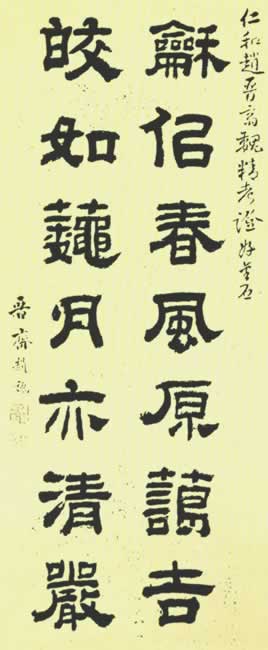 仁和趙晉齋魏精考證好金石
龢佀春風原藹吉
皎如蘒月亦清嚴
晉齋趙魏